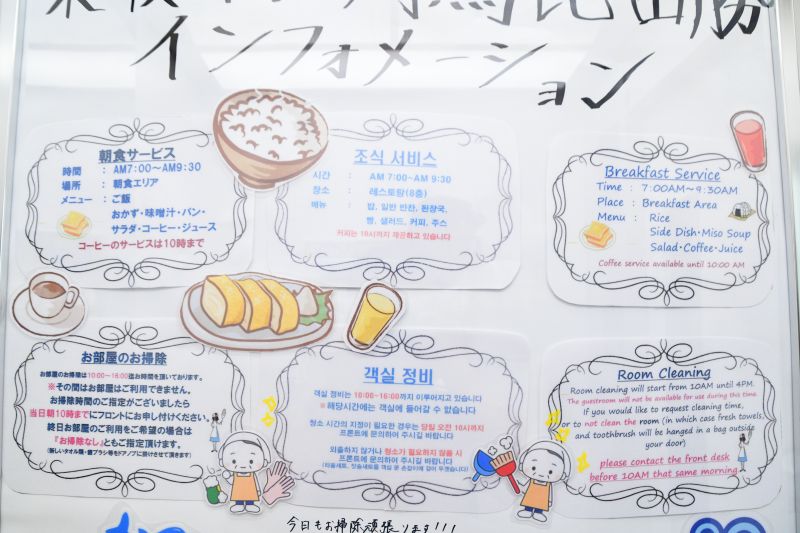 インフォメーション
朝食サービス
時間 : AM7:00～AM9:30
場所 : 朝食エリア
メニュー : ご飯
おかず・味噌汁・パン・
サラダ・コーヒー・ジュース
コーヒーのサービスは10時まで
조식 서비스
시간 : AM 7:00~AM 9:30
장소 : 레스토랑(8층)
메뉴 : 밥, 일반 반찬, 된장국,
빵, 샐러드, 커피, 주스
커피는 10시까지 제공하고 있습니다
Breakfast Service
Time : 7:00AM～9:30AM
Place : Breakfast Area
Menu : Rice
Side Dish・Miso Soup
Salad・Coffee・Juice
Coffee service available until 10:00 AM
お部屋のお掃除
お部屋のお掃除は10:00～16:00迄お時間を頂いております。
※その間はお部屋はご利用できません。
お掃除時間のご指定がございましたら
当日朝10時までにフロントにお申し付けください。
終日お部屋のご利用をご希望の場合は
『お掃除なし』ともご指定頂けます。
(新しいタオル類・歯ブラシ等もドアノブに掛けさせて頂きます)
객실 정비
객실 정비는 10:00~16:00까지 이루어지고 있습니다
※해당시간에는 객실에 들어갈 수 없습니다
청소 시간의 지정이 필요한 경우는 당일 오전 10시까지
프론트에 문의하여 주시길 바랍니다
외출하지 않거나 청소가 필요하지 않을 시
프론트에 문의하여 주시길 바랍니다
Room Cleaning
Room cleaning will start from 10AM until 4PM.
The guestroom will not be available for use during this time.
If you would like to request cleaning time,
or to not clean the room (in which case fresh towels
and toothbrush will be hanged in a bag outside
your door)
please contact the front desk
before 10AM that same morning
今日もお掃除頑張ります!!!